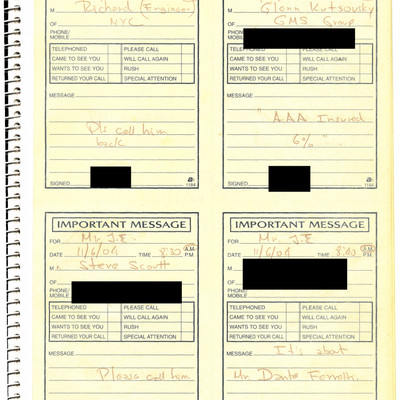 M Richard (Engineer)
OF NYC
PHONE/
MOBILE
TELEPHONED PLEASE CALL
CAME TO SEE YOU WILL CALL AGAIN
WANTS TO SEE YOU RUSH
RETURNED YOUR CALL SPECIAL ATTENTION
MESSAGE
Pls call him
back
SIGNED 1184
M Glenn
OF GMS Group
PHONE/
MOBILE
TELEPHONED PLEASE CALL
CAME TO SEE YOU WILL CALL AGAIN
WANTS TO SEE YOU RUSH
RETURNED YOUR CALL SPECIAL ATTENTION
MESSAGE
"AAA Insured
6%"
SIGNED 1184
IMPORTANT MESSAGE
FOR Mr. J.E.
DATE 11/6/04 TIME 8:30 A.M. P.M.
M r. Steve Scoutt
OF
PHONE/
MOBILE
TELEPHONED PLEASE CALL
CAME TO SEE YOU WILL CALL AGAIN
WANTS TO SEE YOU RUSH
RETURNED YOUR CALL SPECIAL ATTENTION
MESSAGE
Please call him
IMPORTANT MESSAGE
FOR Mr. J.E
DATE 11/6/04 TIME 8:40 A.M. P.M.
M
OF
PHONE/
MOBILE
TELEPHONED PLEASE CALL
CAME TO SEE YOU WILL CALL AGAIN
WANTS TO SEE YOU RUSH
RETURNED YOUR CALL SPECIAL ATTENTION
MESSAGE It's about
Mr. Dante